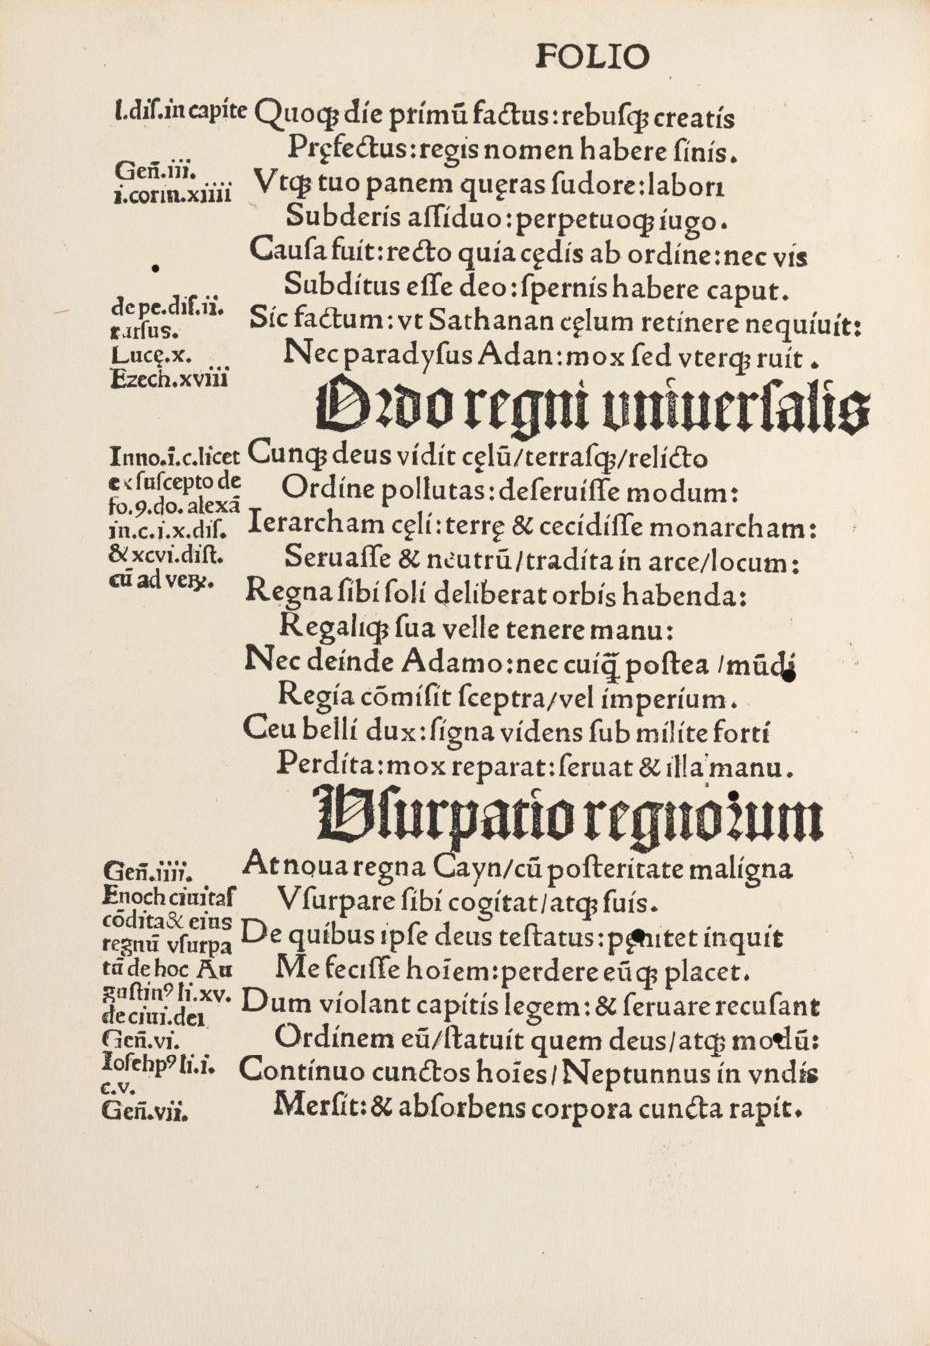 FOLIO
l.diſ.in capite
Quoqꝫ die primū factus:rebuſqꝫ creatis
Pręfectus:regis nomen habere ſinis.
Geñ.iii.
Vtqꝫ tuo panem quęras ſudore:labori
i.corin.xiiii
Subderis aſſiduo:perpetuoqꝫ iugo.
Cauſa fuit:recto quia cędis ab ordine:nec vis
Subditus eſſe deo:ſpernis habere caput.
de pe.diſ.ii.
Sic factum:vt Sathanan cęlum retinere nequiuit:
rurſus.
Lucę.x.
Nec paradyſus Adan:mox ſed vterqꝫ ruit.
Ezech.xviii
Ordo regni univerſalis
Inno.i̅.c.licet
Cunqꝫ deus vidit cęlū/terraſqꝫ/relicto
ex ſuſcepto de
Ordine pollutas:deſeruiſſe modum:
fo.9.do.alexā
in.c.i.x.diſ.
Ierarcham cęli:terrę & cecidiſſe monarcham:
& xcvi.diſt.
Seruaſſe & neutrū/tradita in arce/locum:
cū ad veꝝ.
Regna ſibi ſoli deliberat orbis habenda:
Regaliqꝫ ſua velle tenere manu:
Nec deinde Adamo:nec cuiq̄ꝫ poſtea /mūdi
Regia cōmiſit ſceptra/vel imperium.
Ceu belli dux:ſigna videns ſub milite forti
Perdita:mox reparat:ſeruat & illa manu.
Vſurpatio regnoꝛum
Geñ.iiii.
At noua regna Cayn/cū poſteritate maligna
Enoch ciuitaſ
Vſurpare ſibi cogitat/atqꝫ ſuis.
cōdita & eius
regnū vſurpa
De quibus ipſe deus teſtatus:pęnitet inquit
tū de hoc Au
Me feciſſe hoīem:perdere eūqꝫ placet.
guſtinꝰ li.xv.
Dum violant capitis legem:& ſeruare recuſant
de ciui.dei
Geñ.vi.
Ordinem eū/ſtatuit quem deus/atqꝫ modū:
Ioſehpꝰ li.i.
Continuo cunctos hoīes/Neptunnus in vndis
c.v.
Geñ.vii.
Merſit:& abſorbens corpora cuncta rapit.